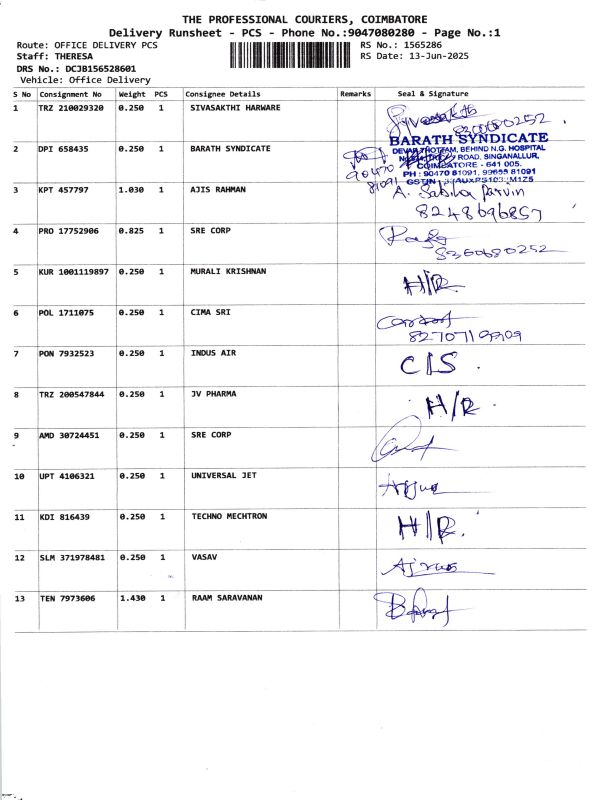 THE PROFESSIONAL COURIERS, COIMBATORE
Delivery Runsheet - PCS - Phone No.:9047080280 - Page No.:1
Route: OFFICE DELIVERY PCS RS No.: 1565286
Staff: THERESA RS Date: 13-Jun-2025
DRS No.: DCJB156528601
Vehicle: Office Delivery
S No Consignment No Weight PCS Consignee Details Remarks Seal & Signature
1 TRZ 210029320 0.250 1 SIVASAKTHI HARWARE
8300680252
2 DPI 658435 0.250 1 BARATH SYNDICATE
BARATH SYNDICATE
DEVAR THOTTAM, BEHIND N.G. HOSPITAL
ROAD, SINGANALLUR,
COIMBATORE - 641 005.
PH : 90470 81091, 99655 81091
90470
81091
3 KPT 457797 1.030 1 AJIS RAHMAN
A. Sabila Parvin
8248696857
4 PRO 17752906 0.825 1 SRE CORP
8300680252
5 KUR 1001119897 0.250 1 MURALI KRISHNAN H/R
6 POL 1711075 0.250 1 CIMA SRI
7 PON 7932523 0.250 1 INDUS AIR CIS.
8 TRZ 200547844 0.250 1 JV PHARMA H/R.
9 AMD 30724451 0.250 1 SRE CORP
10 UPT 4106321 0.250 1 UNIVERSAL JET
11 KDI 816439 0.250 1 TECHNO MECHTRON H/R.
12 SLM 371978481 0.250 1 VASAV
13 TEN 7973606 1.430 1 RAAM SARAVANAN